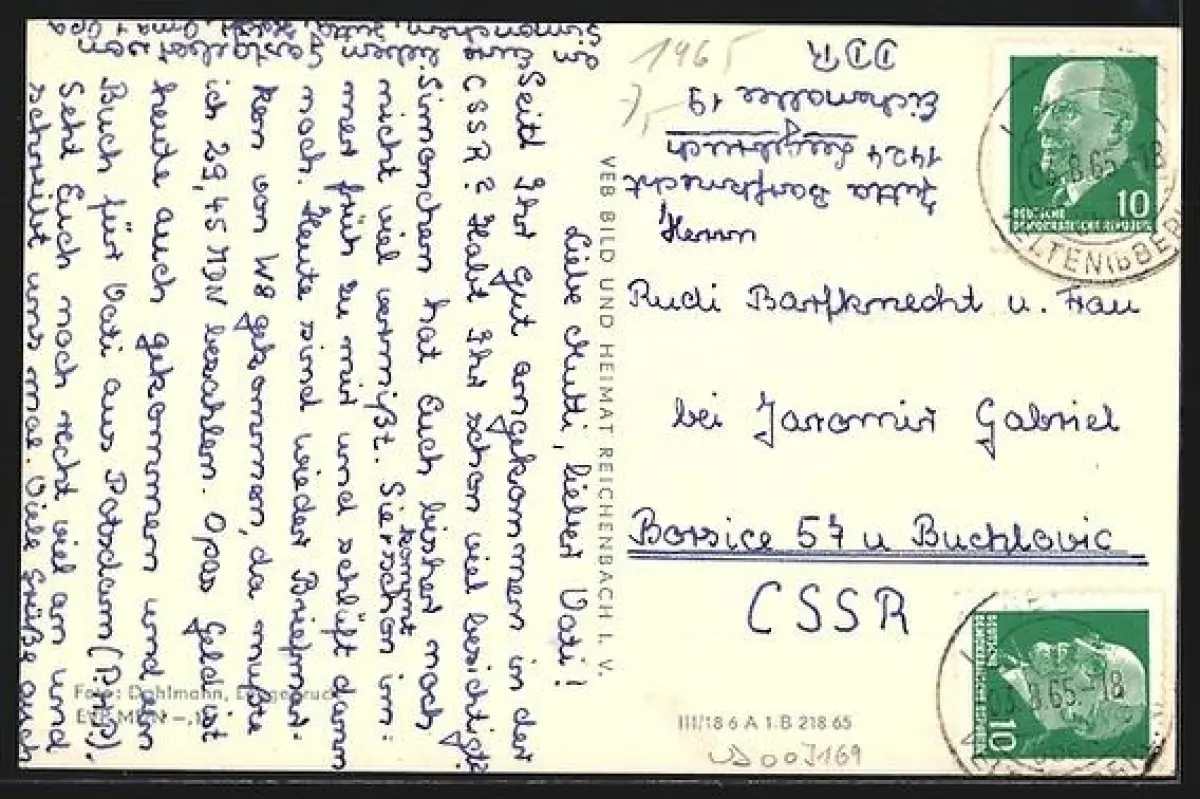 Liebe Mutti, lieber Vati!
Seid Ihr gut angekommen in der
CSSR? Habt Ihr schon viel besichtigt?
Simonchen hat Euch bisher noch
nicht viel vermißt. Sie kommt schon im-
mer früh zu mir und schläft dann
noch. Heute sind wieder Briefmar-
ken von W8 gekommen, da mußte
ich 29,45 MDN bezahlen. Opas Geld ist
heute auch gekommen und ein
Buch für Vati aus Potsdam (P.H.).
Seht Euch noch recht viel an und
schreibt uns mal. Viele Grüße auch
von Oma + Opa
Es
Eure
Simonchen
VEB BILD UND HEIMAT REICHENBACH I. V.
1965
7,-
Jutta Barfknecht
1424 Leegebruch
Eichenallee 19
DDR
Herrn
Rudi Barfknecht u. Frau
bei Jaromir Gabriel
Borsice 57 u Buchlovic
CSSR
10
DEUTSCHE
DEMOKRATISCHE REPUBLIK
03.8.65-18
VELTEN
10
DEUTSCHE
DEMOKRATISCHE REPUBLIK
03.8.65-18
Foto: Dahlmann, Leegebruch
EVP MDN -,
III/18 6 A 1 B 218 65